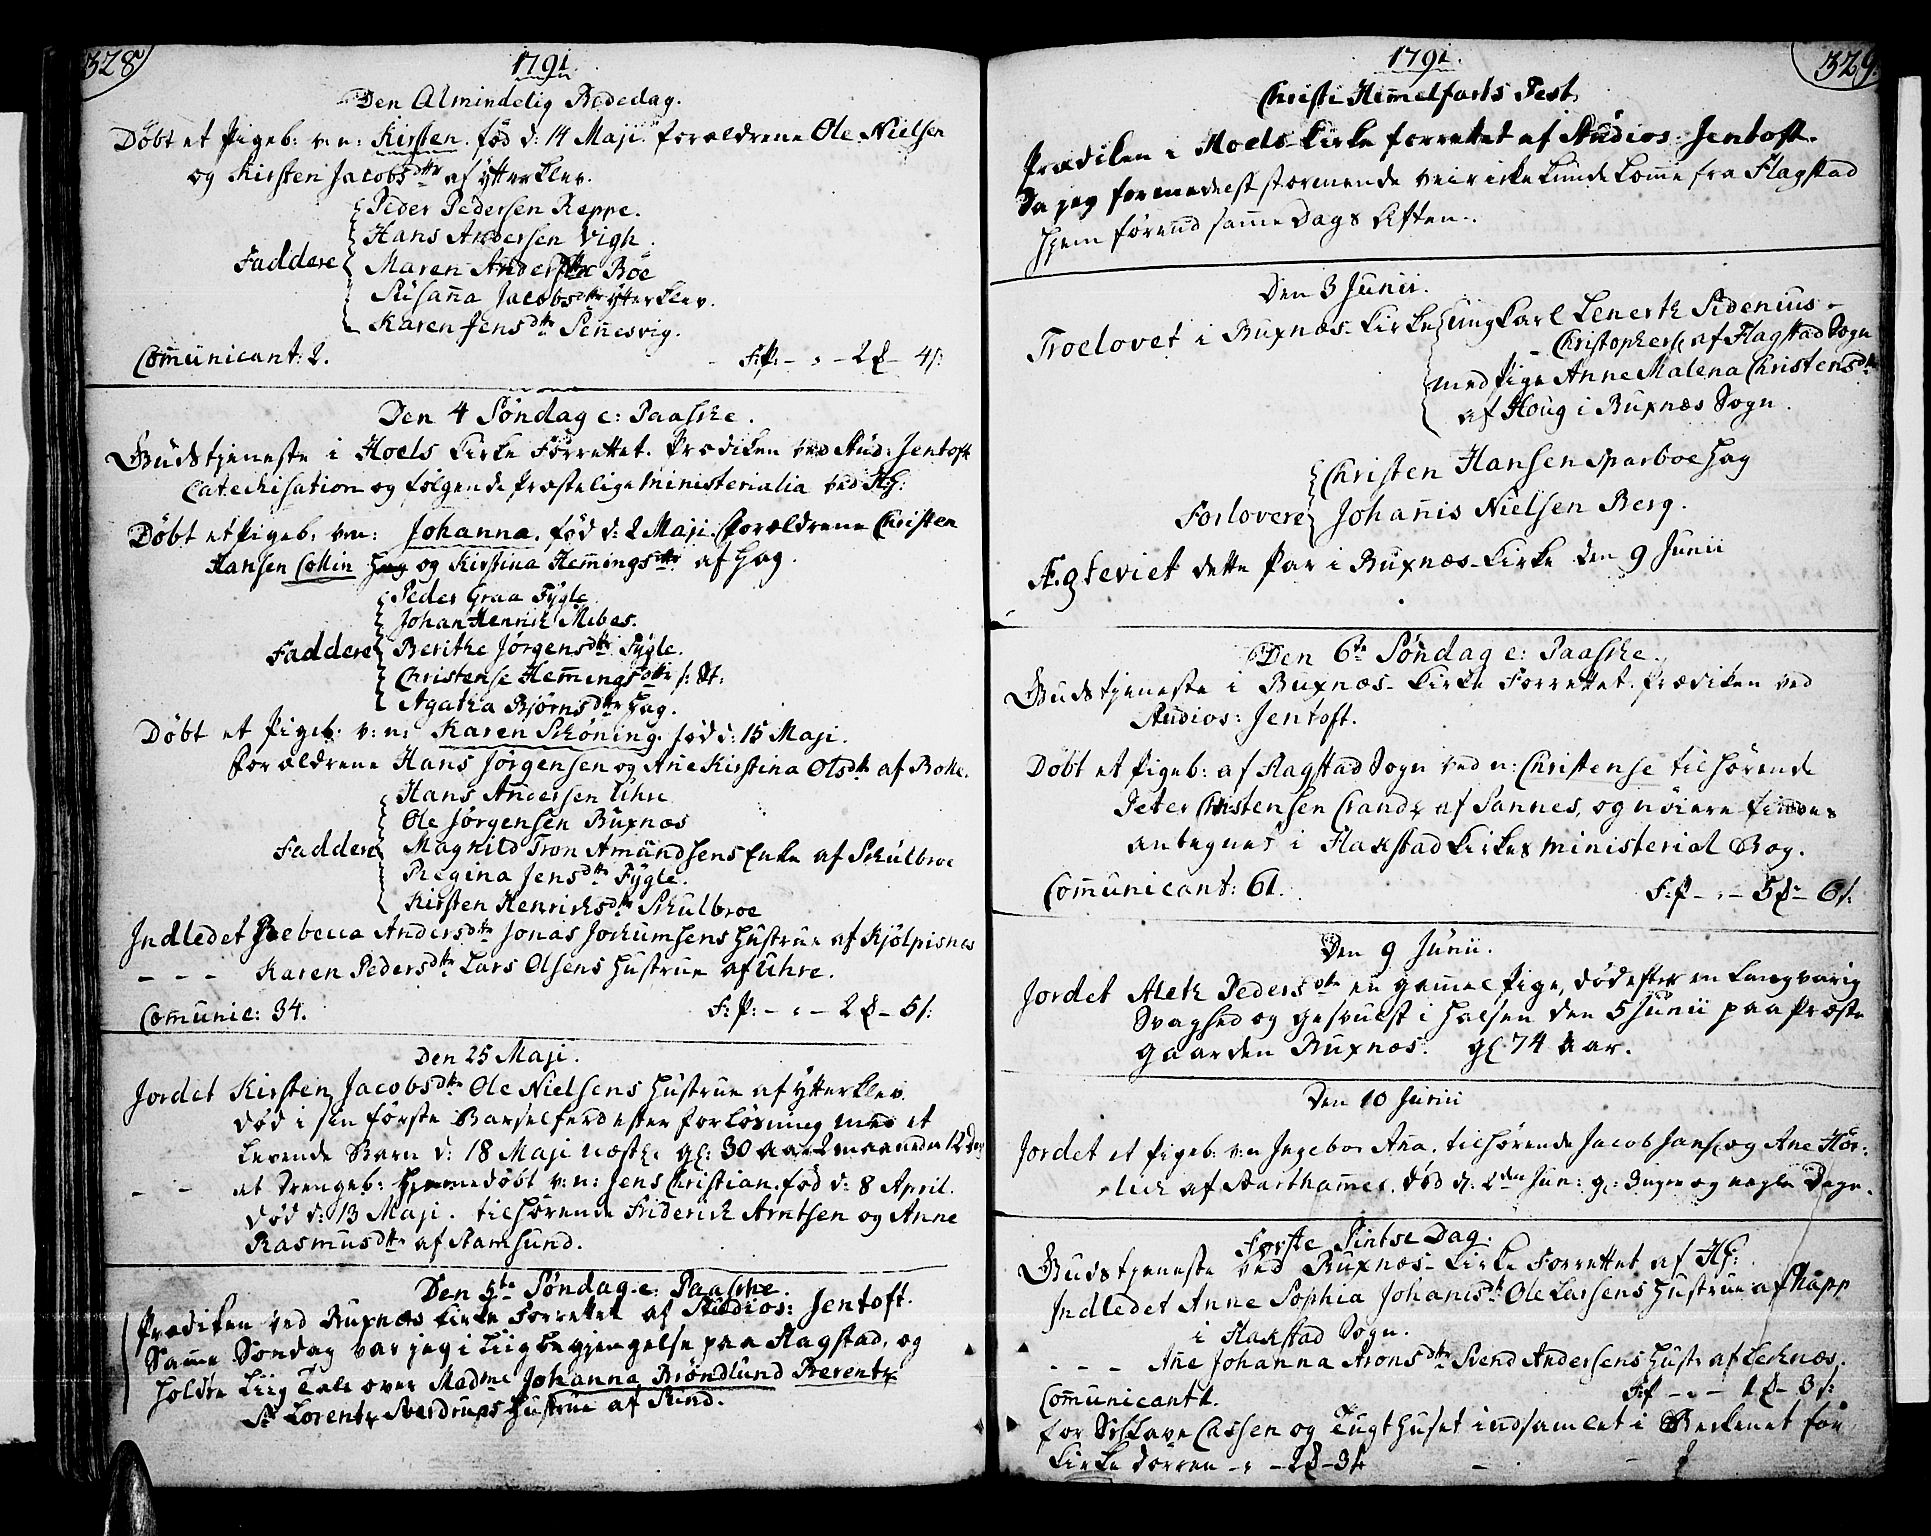 328
1791
Den Almindelig Bededag.
Döbt et Pigeb: v: n: Kirsten. föd d: 14 Maji. forældrene Ole Nielsen
og Kirsten Jacobsdtr af Ytterklev.
Peder Pedersen Reppe.
Hans Andersen Vigh.
Faddere Maren Anders Böe
Susanna Jacobsdtr Ytterklev.
Karen Jensdtr Sennesvig.
Communicant: 2. F:P: - : - 2 - 4 s:
Den 4 Söndag e: Paaske.
Gudstjeneste i Hoels Kirke Forrettet. Prædiken ved Stud: Jentoft
Catechisation og fölgende Præstelige ministerialia ved
Döbt et Pigeb: v: n: Johanna. föd d: 2 Maji. Forældrene Christen
Hansen Collin Hag og Kirstina Hemmingsdtr af Hag.
Peder Graa Fygle
Johan Henrich Mebes.
Faddere Berithe Jörgensdtr Fygle.
Christense Hemmingsdtr
Agatha Björnsdtr Hag.
Döbt et Pigeb: v: n: Karen Schöning. föd d: 15 Maji.
Forældrene Hans Jörgensen og Ane Kirstina Olsdtr af Bolle.
Hans Andersen Uhre
Ole Jörgensen Buxnæs
Faddere Magnild Tron Amundsens Enke af Skulbroe
Regina Jensdtr Fygle.
Kirsten Henrichsdtr Skulbroe
Indledet Rebecca Andersdtr Jonas Jochumsens Hustrue af Kjölpisnes
- - - Karen Pedersdtr Lars Olsens Hustrue af Uhre.
Comunic: 34. F:P: - : - 2 - 5 s:
Den 25 Maji.
Jordet Kirsten Jacobsdtr Ole Nielsens Hustrue af Ytterklev.
död i sin förste Barselferd efter forlösning med et
levende Barn d: 18 Maji næstl. gl: 30 Aar 2 maaneder 12 Dag
- - et Drengeb: Hjemmedöbt v: n: Jens Christian. föd d: 8 April.
död d: 13 Maji. tilhörende Friderich Arntsen og Anne
Rasmusdtr af Stamsund.
Den 5te Söndag e: Paaske.
Prædiken ved Buxnæs Kirke Forrettet af Studios: Jentoft.
Samme Söndag var jeg i Liigbegjengelse paa Flagstad, og
holdte Liig Tale over Madme Johanna Bröndlund Berentz
Sr Lorentz Sverdrups Hustrue af Sund.
329.
1791.
Christi Himmelfarts Fest.
Prædiken i Hoels Kirke forrettet af Studios: Jentoft.
Da jeg formedelst stormende veir ikke kunde komme fra Flagstad
hjem förend samme Dags Aften.
Den 3 Junii.
Troelovet i Buxnæs Kirke ungkarl Lenerth Sidenius -
- Christophers: af Flagstad Sogn
med Pige Anne Malena Christensdtr
af Houg i Buxnæs Sogn.
Christen Hansen Sparboe Hag
Forlovere Johannis Nielsen Berg.
Ægteviet dette Par i Buxnæs Kirke den 9 Junii
Den 6te Söndag e: Paaske.
Gudstjeneste i Buxnæs Kirke Forrettet. Prædiken ved
Studios: Jentoft.
Döbt et Pigeb: af Flagstad Sogn ved n: Christense tilhörende
Peter Christensen Crandz af Sannes, og nöiere findes
antegnet i Flakstad Kirkes ministerial Bog.
Communicant: 61. F:P - : - 5 - 6 s:
Den 9 Junii.
Jordet Aleth Pedersdtr en gammel Pige, död efter en langvarig
Svaghed og gesvulst i Halsen den 5 Junii paa Præste
gaarden Buxnæs. gl 74 Aar.
Den 10 Junii
Jordet et Pigeb: v: n: Ingebor Ana. tilhörende Jacob Jans: og Ane Hör:
lich af Starthammer. död d: 2den Jun: gl: 3 uger og nogle Dage.
Förste Pintse Dag.
Gudstjeneste ved Buxnæs Kirke Forrettet af
Indledet Anne Sophia Johansdtr Ole Larsens Hustrue af Napp
i Flakstad Sogn.
- - - Ane Johanna Aronsdtr Svend Andersens Hustr af Leknæs.
Communicant 1. F:P - : - 1 - 3 s:
for Slave Cassen og Tugthuset indsamlet i Bekkenet for
Kirke dörren - : - 2 - 3 s